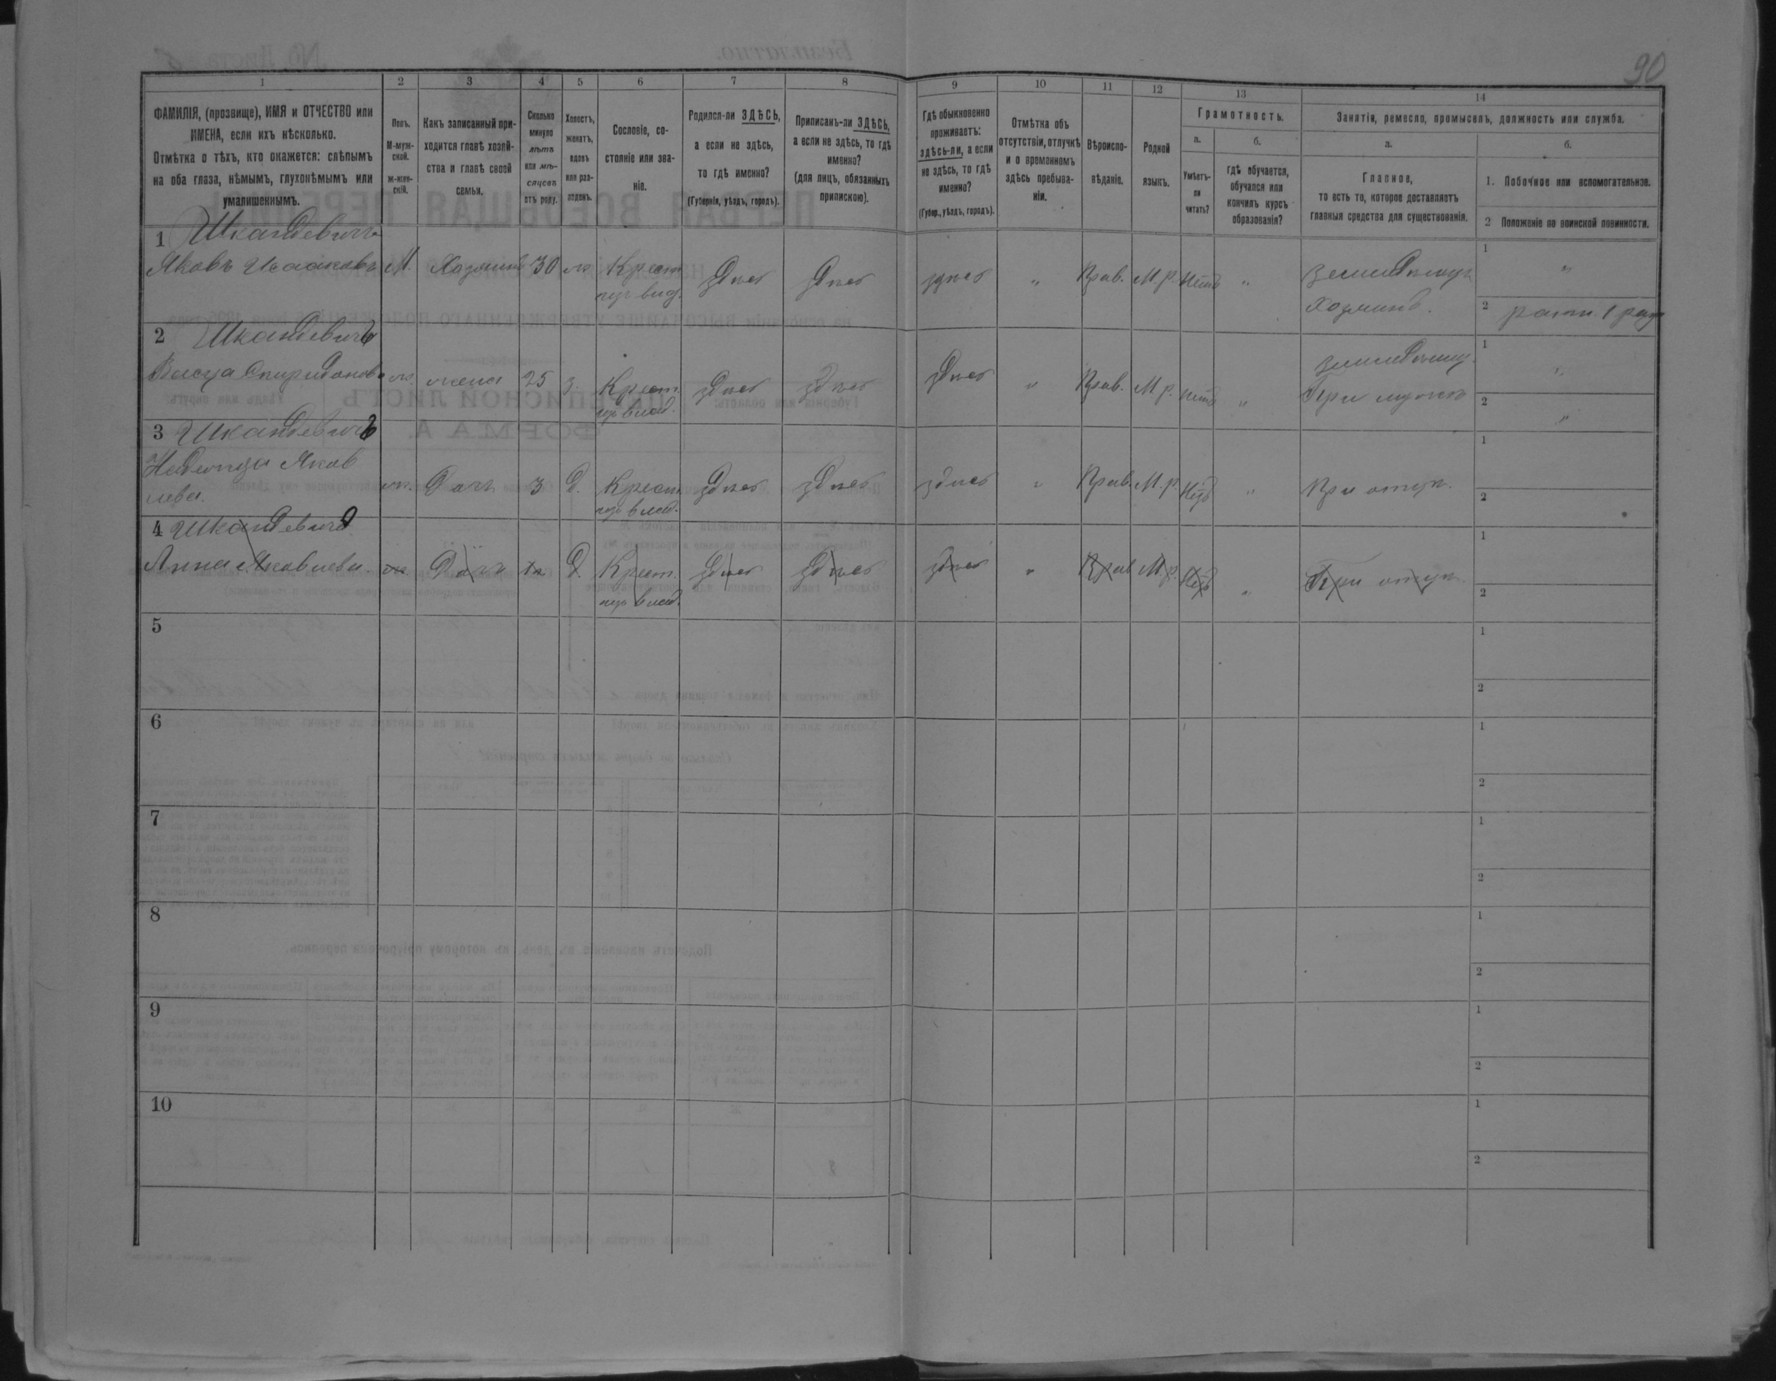 90
1 2 3 4 5 6 7 8 9 10 11 12 13 14
ФАМИЛІЯ, (прозвище), ИМЯ и ОТЧЕСТВО или
ИМЕНА, если ихъ нѣсколько.
Отмѣтка о тѣхъ, кто окажется: слѣпымъ
на оба глаза, нѣмымъ, глухонѣмымъ или
умалишеннымъ.
Полъ.
М-муж-
ской.
Ж-жен-
скій.
Какъ записанный при-
ходится главѣ хозяй-
ства и главѣ своей
семьи.
Сколько
минуло
лѣтъ
или мѣ-
сяцевъ
отъ роду.
Холостъ,
женатъ,
вдовъ
или раз-
веденъ.
Сословіе, со-
стояніе или зва-
ніе.
Родился-ли ЗДѢСЬ,
а если не здѣсь,
то гдѣ именно?
(Губернія, уѣздъ, городъ).
Приписанъ-ли ЗДѢСЬ,
а если не здѣсь, то гдѣ
именно?
(для лицъ, обязанныхъ
припискою).
Гдѣ обыкновенно
проживаетъ:
здѣсь-ли, а если
не здѣсь, то гдѣ
именно?
(Губер., уѣздъ, городъ).
Отмѣтка объ
отсутствіи, отлучкѣ
и о временномъ
здѣсь пребыва-
ніи.
Вѣроиспо-
вѣданіе.
Родной
языкъ.
Грамотность.
а.
Умѣетъ-
ли
читать?
б.
гдѣ обучается,
обучался или
кончилъ курсъ
образованія?
Занятія, ремесло, промыселъ, должность или служба.
а.
Главное,
то есть то, которое доставляетъ
главныя средства для существованія.
б.
1. Побочное или вспомогательное.
2 Положеніе по воинской повинности.
1 Шкандевичъ
Яковъ Исааковъ М. Хозяинъ 30 ж Крест. здѣсь здѣсь здѣсь " Прав. М.р. Нѣтъ " Земледѣлецъ 1 "
Хозяинъ. 2 ратн. 1 раз
2 Шкандевичъ
Спиридонова ж. жена 25 з. Крест. здѣсь здѣсь здѣсь " Прав. М.р. Нѣтъ " 1 "
При мужѣ 2 "
3 Шкандевичъ
Яков
лева ж. Дочь 3 д. Крест. здѣсь здѣсь здѣсь " Прав. М.р. Нѣтъ " При отцѣ. 1
2
4 Шкандевичъ
Анна Яковлева ж. Дочь д. Крест. здѣсь здѣсь здѣсь " Прав. М.р. Нѣтъ " При отцѣ. 1
2
5 1
2
6 1
2
7 1
2
8 1
2
9 1
2
10 1
2